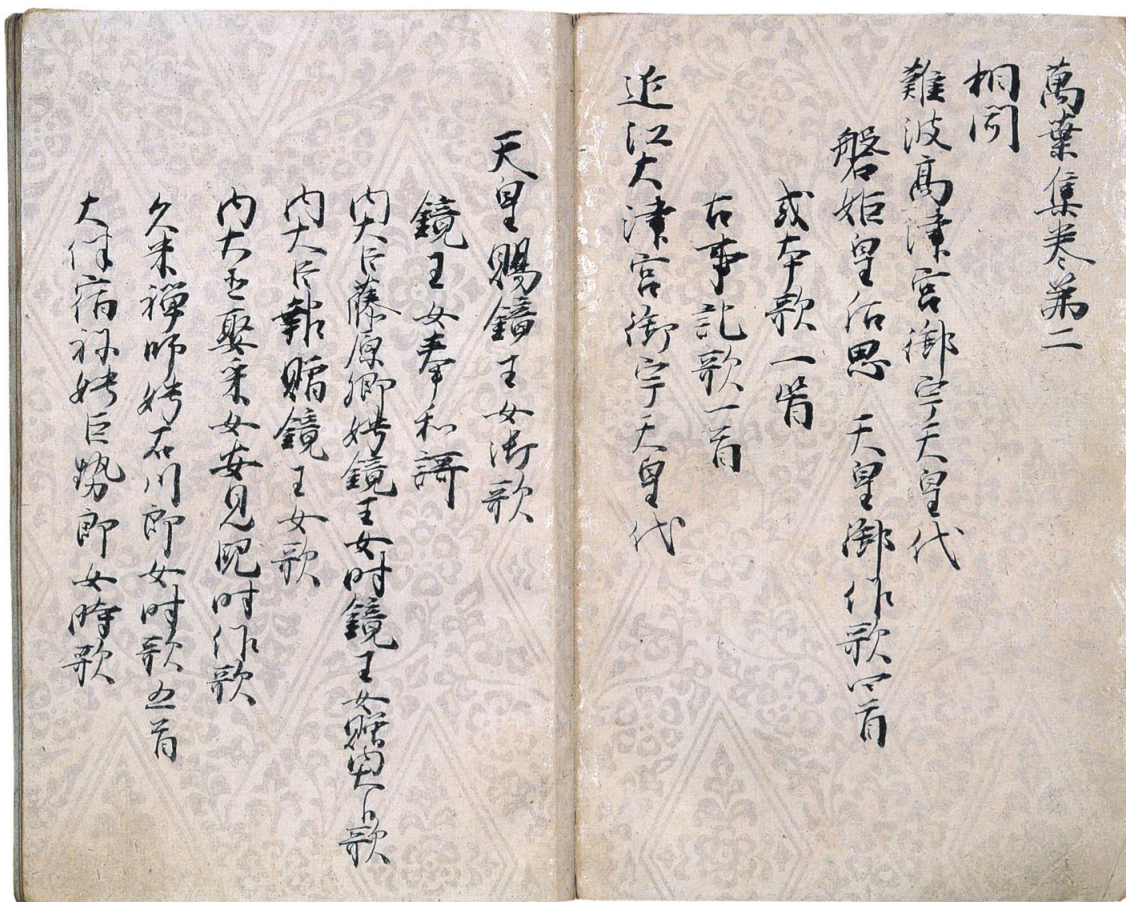 萬葉集卷第二
相聞
難波高津宮御宇天皇代
磐姫皇后思 天皇御作歌四首
或本歌一首
古事記歌一首
近江大津宮御宇天皇代
天皇賜鏡王女御歌
鏡王女奉和謌
内大臣藤原卿娉鏡王女時鏡王女贈内大臣歌
内大臣報贈鏡王女歌
内大臣娶采女安見兒時作歌
久米禅師娉石川郎女時歌五首
大伴宿祢娉巨勢郎女時歌